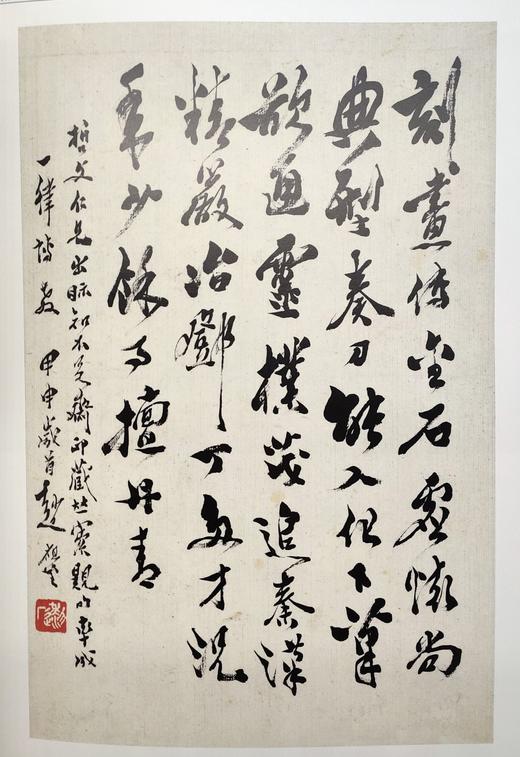 刻畫傳金石虛懷尚
典型奏刀能入化下筆
欲通靈樸茂追秦漢
精嚴冶鄧丁多才況
年少餘事擅丹青
哲文仁兄出眎知不足齋印藏觀率成
一律博教 甲申歲首趙